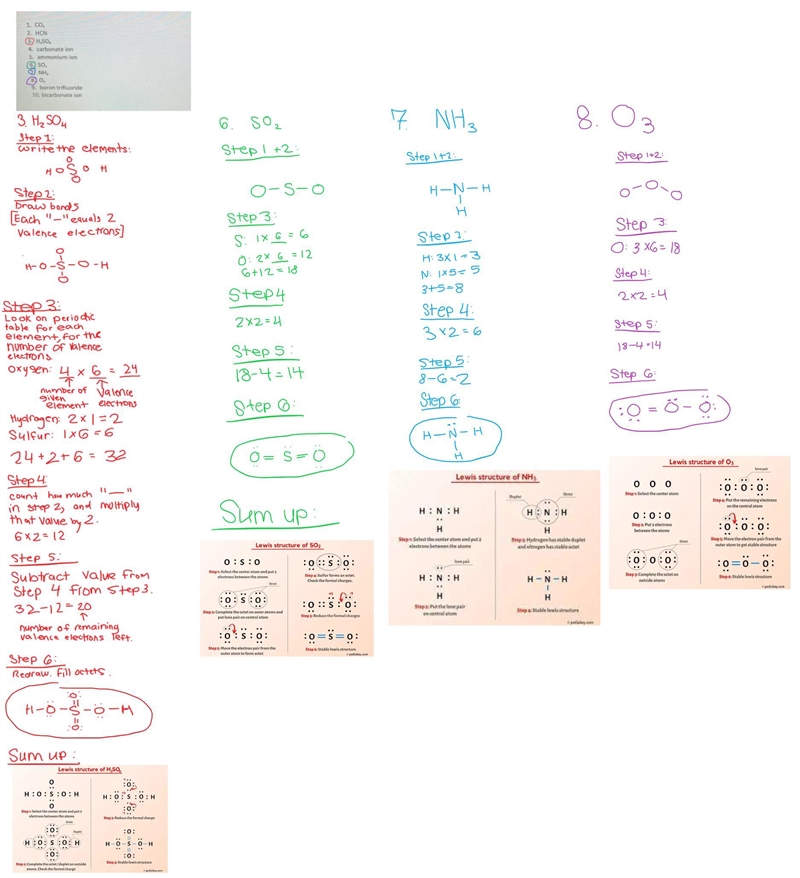 1. CO₂
2. HCN
3. H₂SO₄
4. carbonate ion
5. ammonium ion
6. SO₂
7. NH₃
8. O₃
9. boron trifluoride
10. bicarbonate ion
3. H₂SO₄
Step 1:
Write the elements:
O
H O S O H
O
Step 2:
Draw bonds
[Each "—" equals 2
valence electrons]
O
H-O-S-O-H
O
Step 3:
Look on periodic
table for each
element, for the
number of valence
electrons.
Oxygen: 4 x 6 = 24
number of given element
valence electrons
Hydrogen: 2 x 1 = 2
Sulfur: 1 x 6 = 6
24 + 2 + 6 = 32
Step 4:
count how much "—"
in step 2, and multiply
that value by 2.
6 x 2 = 12
Step 5:
Subtract value from
Step 4 from Step 3.
32 - 12 = 20
number of remaining
valence electrons left.
Step 6:
Redraw. Fill octets.
O
H-O-S-O-H
O
Sum up:
Lewis structure of H₂SO₄
O
H : O : S : O : H
O
Step 1: Select the center atom and put 2
electrons between the atoms
Octet
Duplet
O
H O S O H
O
Step 2: Complete the octet / duplet on outside
atoms. Check the formal charge
O
H : O : S : O : H
O
Step 3: Reduce the formal charge
O
H-O-S-O-H
O
Step 4: Stable lewis structure
© pediabay.com
6. SO₂
Step 1 + 2:
O-S-O
Step 3:
S: 1 x 6 = 6
O: 2 x 6 = 12
6 + 12 = 18
Step 4
2 x 2 = 4
Step 5:
18 - 4 = 14
Step 6:
O = S = O
Sum up:
Lewis structure of SO₂
O : S : O
Step 1: Select the center atom and put 2
electrons between the atoms
Octet
O S O
Step 2: Complete the octet on outer atoms and
put lone pair on central atom
O S O
Step 3: Move the electron pair from the
outer atom to form octet
O S O
Step 4: Sulfur forms an octet.
Check the formal charges.
O S O
Step 5: Reduce the formal charges
O=S=O
Step 6: Stable lewis structure
© pediabay.com
7. NH₃
Step 1+2:
H-N-H
H
Step 2:
H: 3 x 1 = 3
N: 1 x 5 = 5
3+5=8
Step 4:
3 x 2 = 6
Step 5:
8 - 6 = 2
Step 6:
H-N-H
H
Lewis structure of NH₃
H : N : H
H
Step 1: Select the center atom and put 2
electrons between the atoms
lone pair
H : N : H
H
Step 2: Put the lone pair
on central atom
Duplet
Octet
H : N : H
H
Step 3: Hydrogen has stable duplet
and nitrogen has stable octet
H-N-H
H
Step 4: Stable lewis structure
© pediabay.com
8. O₃
Step 1+2:
O-O-O
Step 3:
O: 3 x 6 = 18
Step 4:
2 x 2 = 4
Step 5:
18 - 4 = 14
Step 6:
:O = O - O:
Lewis structure of O₃
O O O
Step 1: Select the center atom
O : O : O
Step 2: Put 2 electrons
between the atoms
Octet
O O O
Step 3: Complete the octet on
outside atoms
lone pair
:O:O:O:
Step 4: Put the remaining electrons
on the central atom
:O:O:O:
Step 5: Move the electron pair from the
outer atom to get stable structure
:O=O-O:
Step 6: Stable lewis structure
© pediabay.com